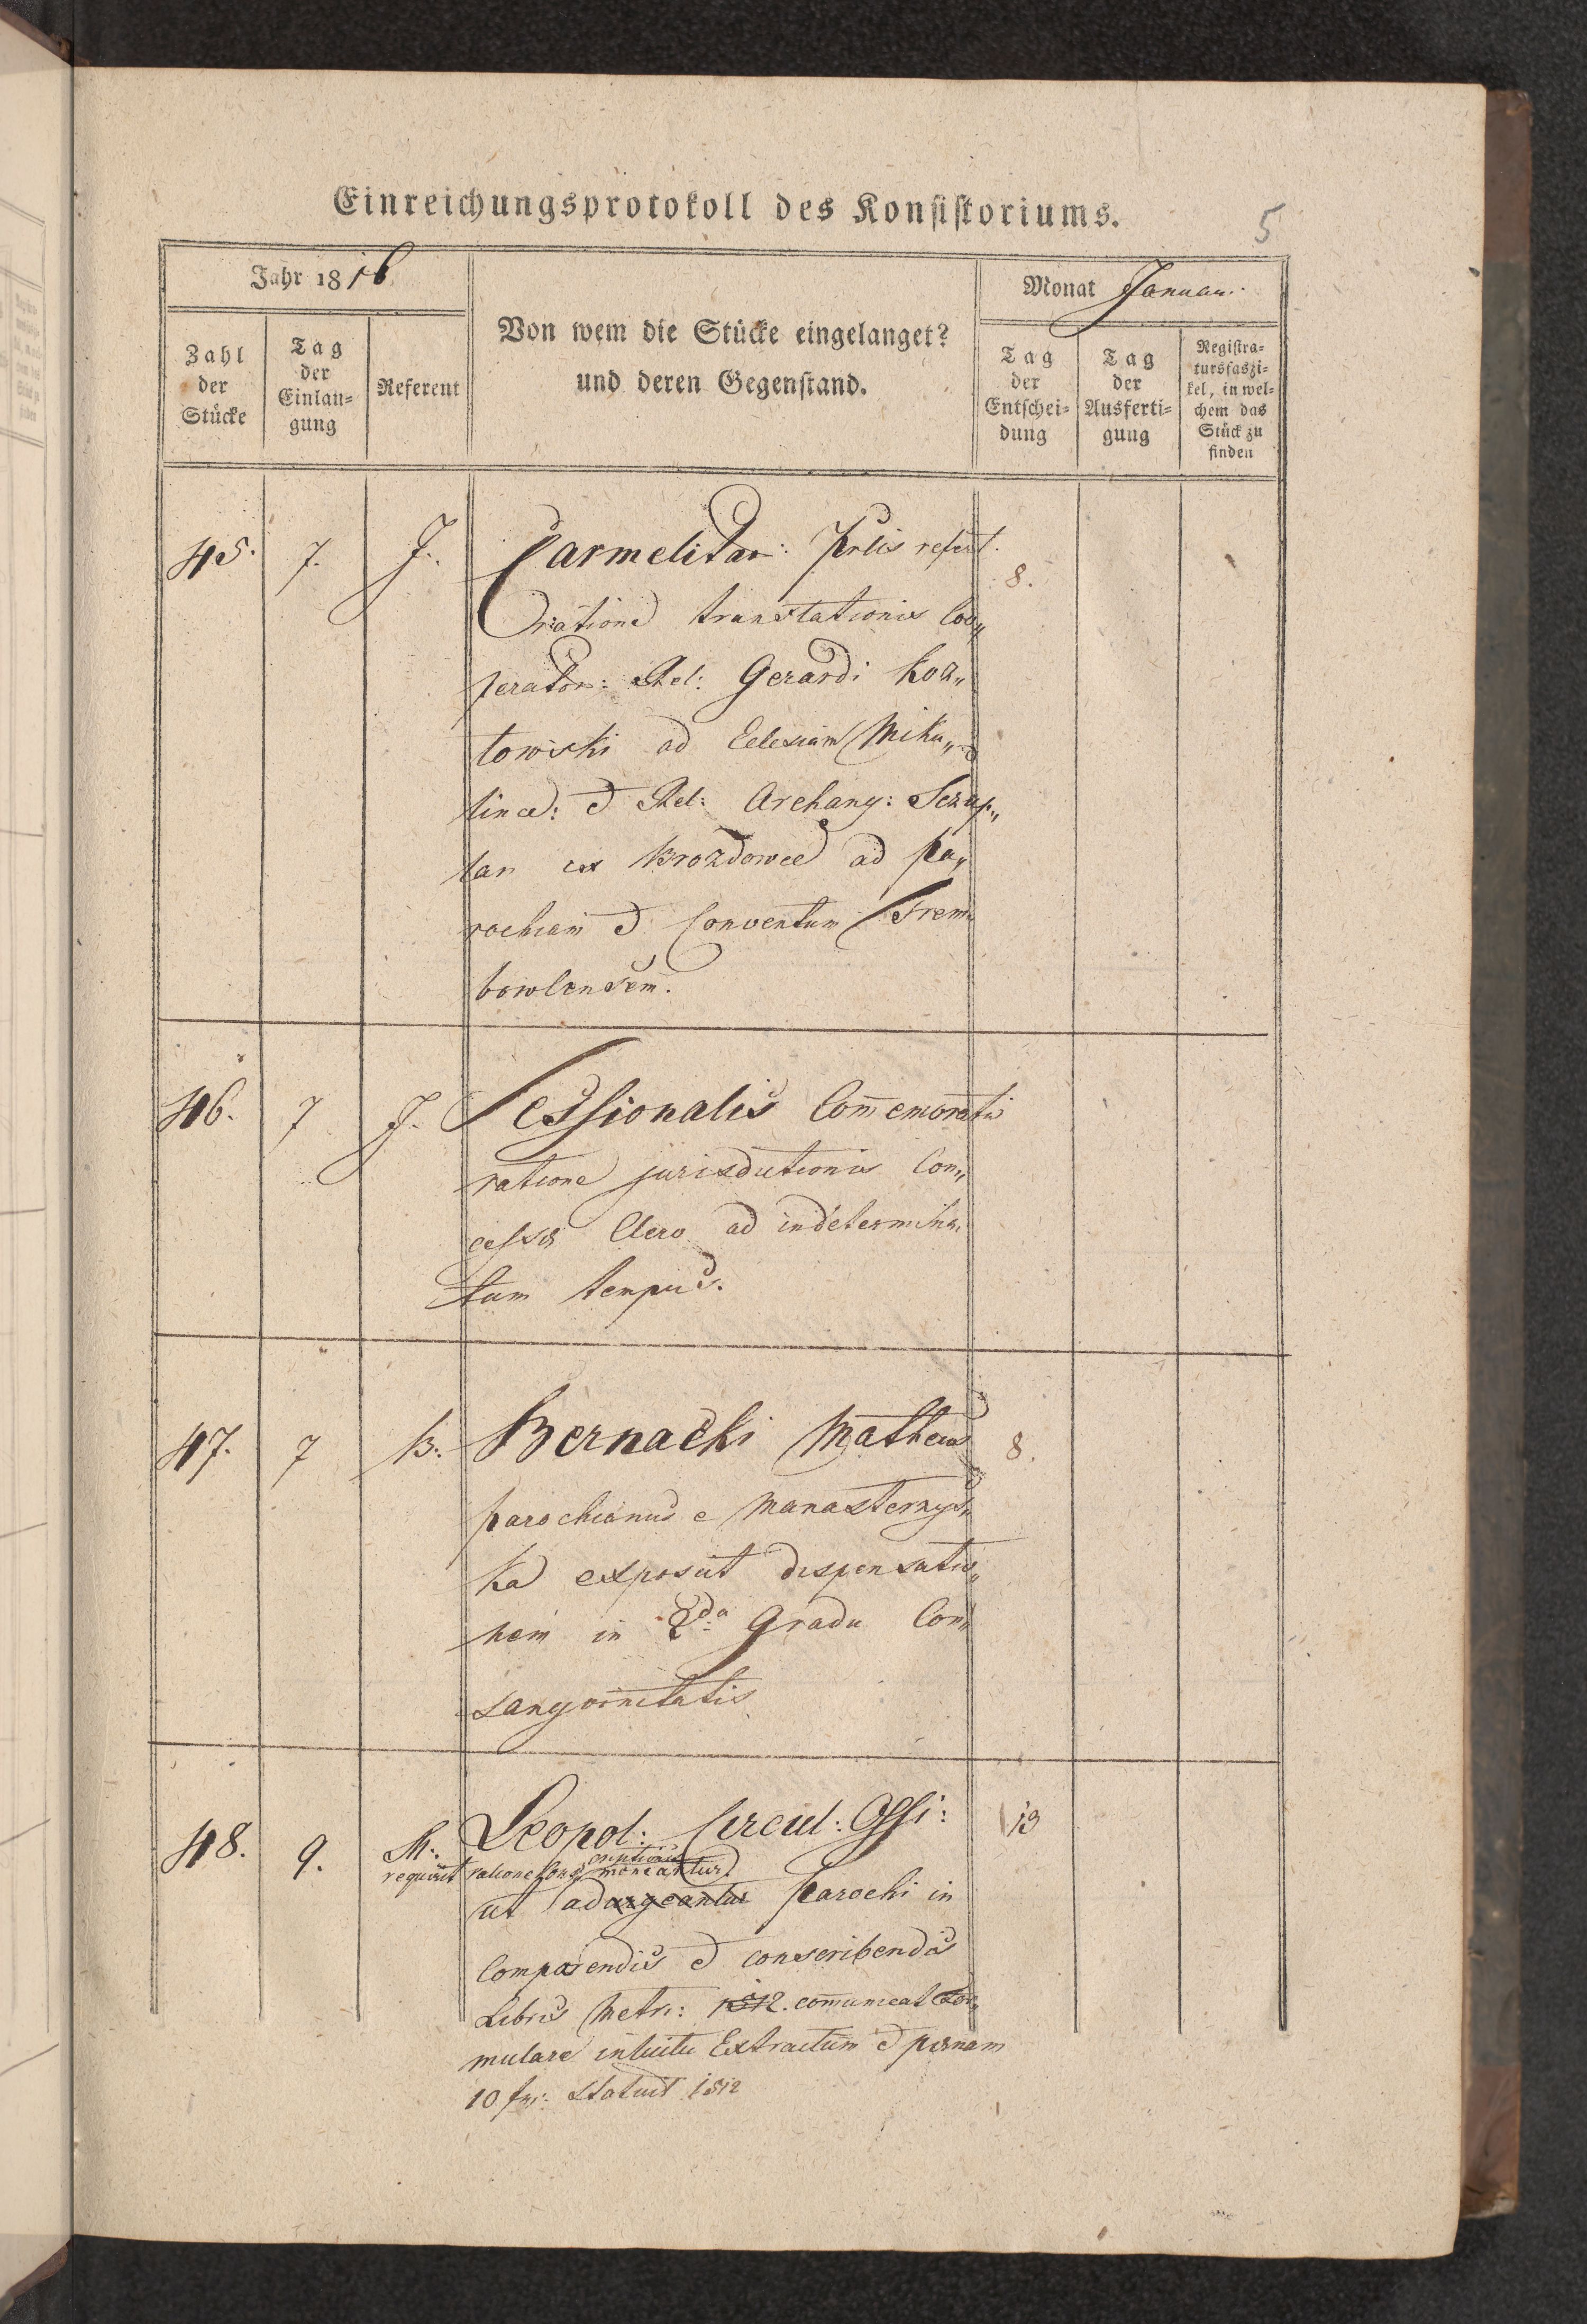 Einreichungsprotokoll des Konsistoriums.
5
Jahr 1816
Monat Januar:
Zahl der Stücke
Tag der Einlan-gung
Referent
Von wem die Stücke eingelanget?
und deren Gegenstand.
Tag der Entschei-dung
Tag der Ausferti-gung
Registra-tursfaszi-kel, in wel-chem das Stück zu finden
45. 7. J. Carmelitar: Prlis refert. 8.
ratione translationis Coo„
perator: Rel: Gerardi Koz„
towiski ad Eclesiam Miku„
lince: et Rel: Archang: Sczep„
lan ex Brozdowce ad Pa„
rochiam et Conventum Trem„
bowlensem.
46. 7 J. Sessionalis Commemoratio
ratione jurisdictionis Con„
cessae Clero ad indetermina„
tum tempus.
47. 7 B. Bernacki Matheus 8.
parochianus e Manasterzys„
ka exposcit dispensatio„
nem in 2do Gradu Con„
sangvinitatis
48. 9. M. Leopol: Circul: Offi: 13
requirit ratione Conscriptionis moneantur
ut adurgeantur Parochi in
Comparendis et conscribendis
Libris Metri: 1812. communicat For„
mulare intuitu Extractum et poenam
10 fr: statuit 1812